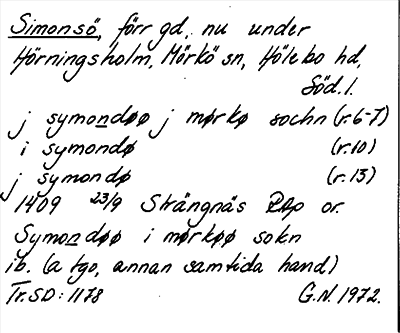 Simonsö, förr gd, nu under
Hörningsholm, Mörkö sn, Hölebo hd,
Söd.l.
j symondøø j mørkø sochn (r.6-7)
i symondø (r.10)
j symondø (r.13)
1409 23/9 Strängnäs RAp or.
Symondøø i mørkøø sokn
ib. (a tgo, annan samtida hand)
Tr. SD: 1178 G.N. 1972.